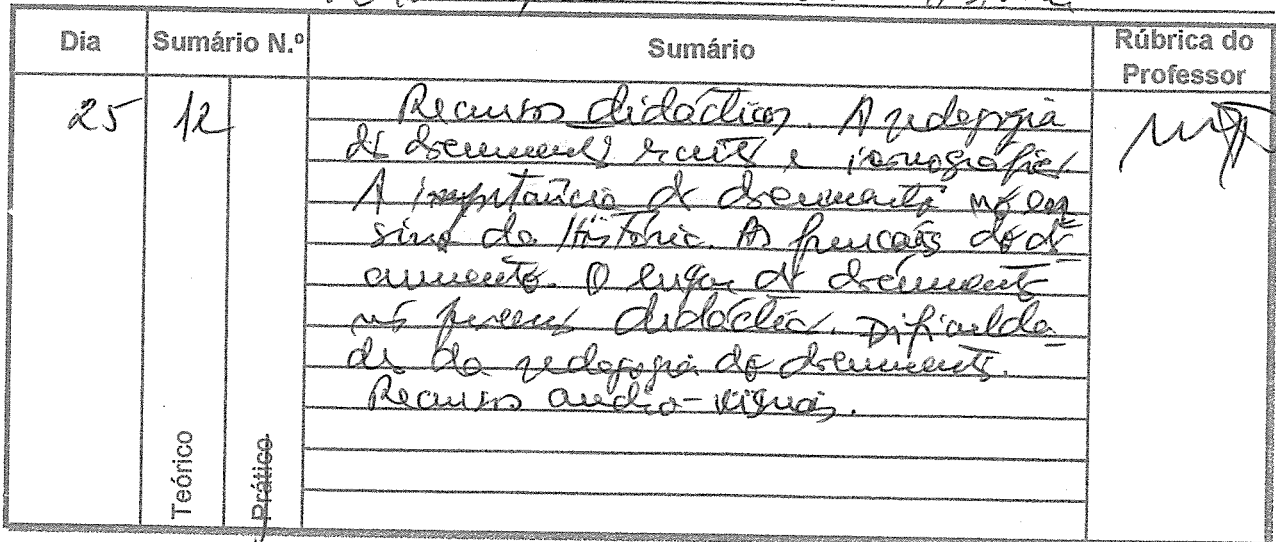 Dia Sumário N.º Sumário Rúbrica do Professor
25 12
Recursos didácticos. A pedagogia
de documentos escritos e iconográficos
A importância do documento no en
sino da História. As funções do do
cumento. O lugar do documento
no processo didáctico. Dificulda_
des da pedagogia do documento.
Recursos audio-visuais.
Teórico Prático